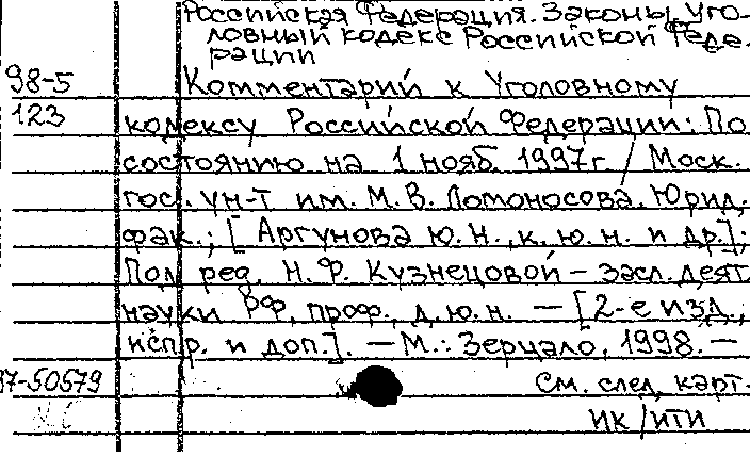 Российская Федерация. Законы. Уго-
ловный кодекс Российской Феде-
рации
98-5 Комментарий к Уголовному
123 кодексу Российской Федерации: По
состоянию на 1 нояб. 1997г. / Моск.
гос. ун-т им. М. В. Ломоносова. Юрид.
фак.; [Аргунова Ю. Н., к. ю. н. и др.];
Под ред. Н. Ф. Кузнецовой - засл. деят.
науки РФ, проф., д. ю. н. — [2-е изд.,
испр. и доп.]. — М.: Зерцало, 1998. —
97-50579 См. след. карт.
ИК/ИТИ